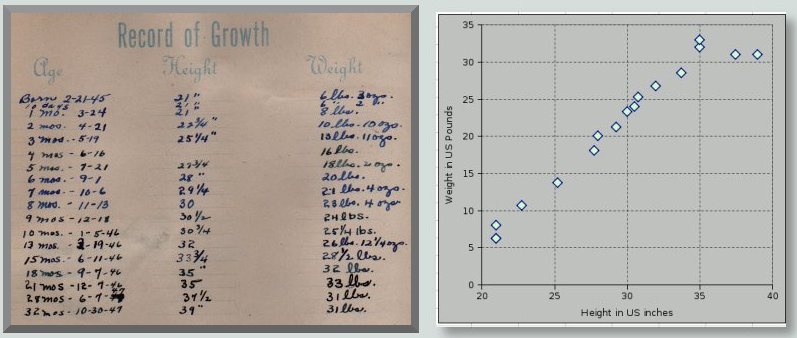 Record of Growth
Age Height Weight
Born 2-21-45 21" 6 lbs. 3 ozs.
10 days 21" 6 " 2 "
1 mo. 3-24 21" 8 lbs.
2 mos. 4-21 22 3/4" 10 lbs. 10 ozs.
3 mos. - 5-19 25 1/4" 13 lbs. 11 ozs.
4 mos - 6-16 16 lbs.
5 mos. - 7-21 27 3/4 18 lbs. ozs.
6 mos. - 9-1 28" 20 lbs.
7 mos. - 10-6 29 1/4 21 lbs. 4 ozs.
8 mos. - 11-13 30 23 lbs. 4 ozs
9 mos - 12-18 30 1/2 24 lbs.
10 mos. - 1-5-46 30 3/4 25 1/4 lbs.
13 mos. - -19-46 32 26 lbs. 12 1/4 ozs.
15 mos. - 6-11-46 33 3/4 28 1/2 lbs.
18 mos - 9-7-46 35" 32 lbs.
21 mos - 12-7-46 35 33 lbs.
28 mos - 6-7-47 37 1/2 31 lbs.
32 mos - 10-30-47 39" 31 lbs.
35
30
25
20
15
10
5
0
20 25 30 35 40
Weight in US Pounds
Height in US inches